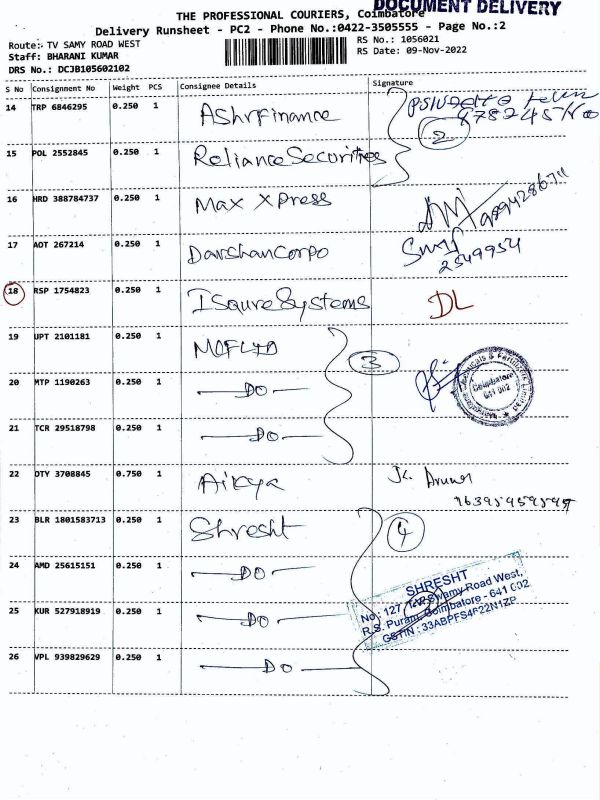 DOCUMENT DELIVERY
THE PROFESSIONAL COURIERS, Coimbatore
Delivery Runsheet - PC2 - Phone No.:0422-3505555 - Page No.:2
Route:- TV SAMY ROAD WEST
RS No.: 1056021
Staff: BHARANI KUMAR
RS Date: 09-Nov-2022
DRS No.: DCJB105602102
S No Consignment No Weight PCS Consignee Details Signature
14 TRP 6846295 0.250 1 AshrFinance
15 POL 2552845 0.250 1 Reliance Securities 2
16 HRD 388784737 0.250 1 Max XPress
17 AOT 267214 0.250 1 Darshan Corpo 2549954
18 RSP 1754823 0.250 1 ISqureSystems DL
19 UPT 2101181 0.250 1 MOFLTD 3
20 MTP 1190263 0.250 1 DO
21 TCR 29518798 0.250 1 DO
Coimbatore
641 002
22 DTY 3708845 0.750 1 Aikya
23 BLR 1801583713 0.250 1 Shresht 4
24 AMD 25615151 0.250 1 DO
25 KUR 527918919 0.250 1 DO
26 VPL 939829629 0.250 1 DO
SHRESHT
No: 127, Swamy Road West,
R.S. Puram, Coimbatore - 641 002
GSTIN : 33ABPFS4622N1ZP